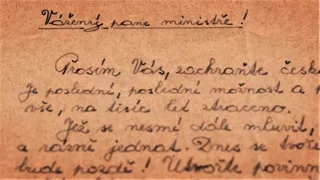 Vážený pane ministře!
Prosím Vás, zachraňte česk
je poslední, poslední možnost a p
vše, na tisíc let ztraceno.
Již se nesmí dále mluvit,
a rázně jednat. Dnes se tvoř
bude pozdě! Utvořte povinn